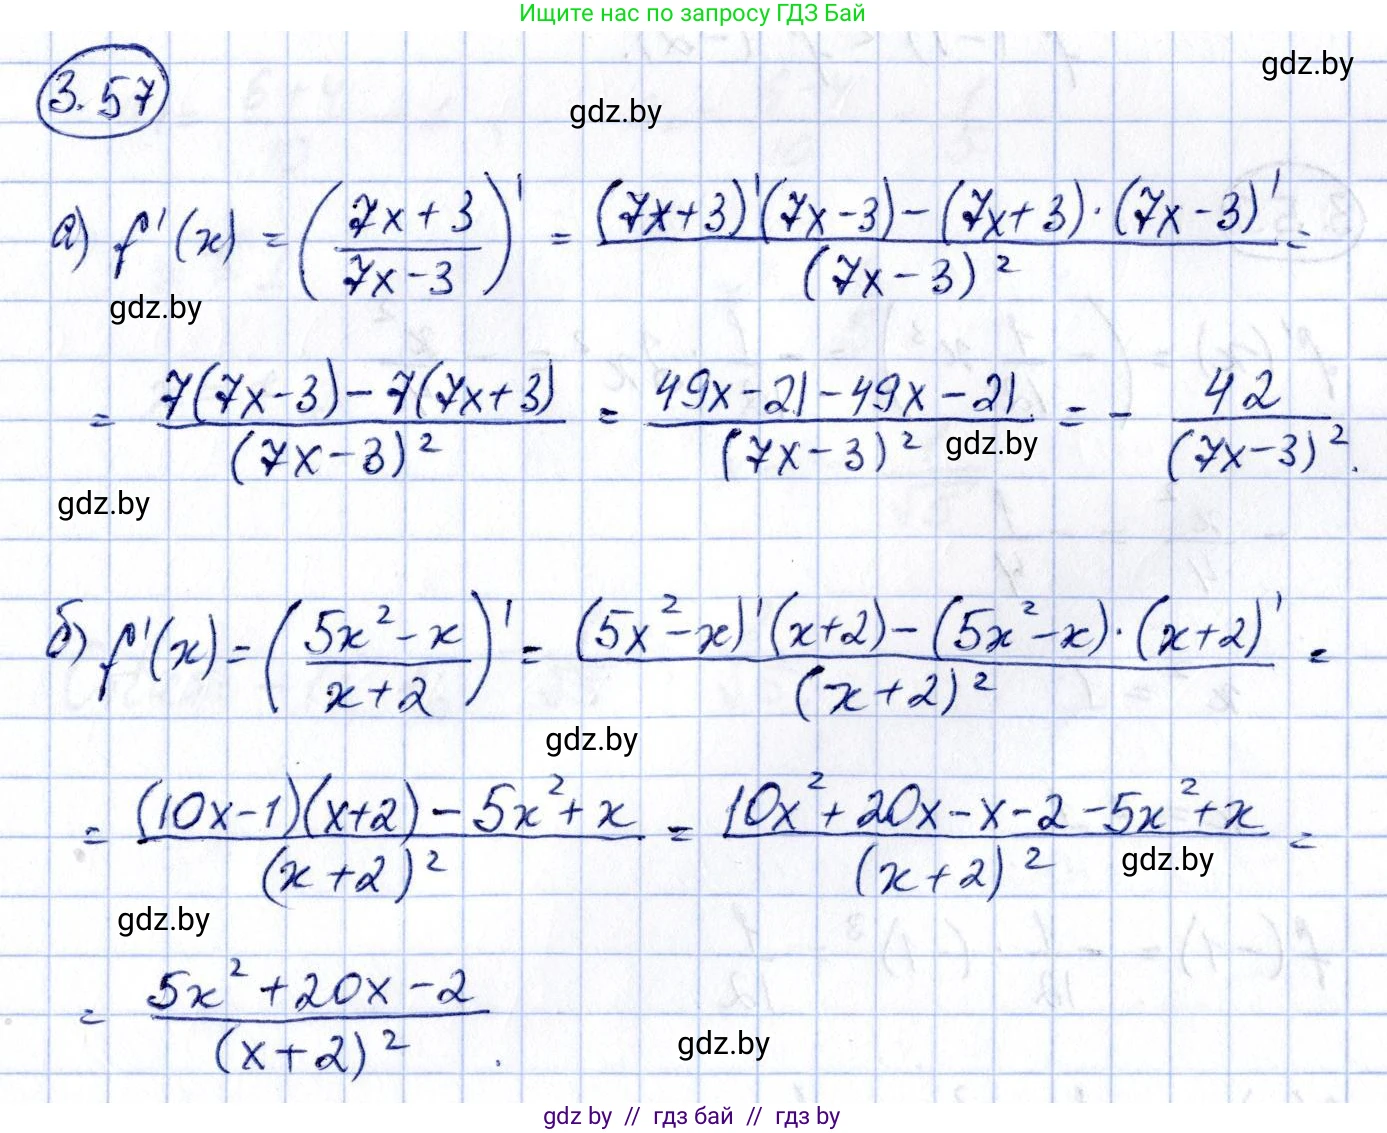 Ищите нас по запросу ГДЗ Бай
gdz.by
3.57
gdz.by
а) f'(x) = ((7x+3)/(7x-3))' = ((7x+3)'(7x-3) - (7x+3)·(7x-3)')/(7x-3)² =
gdz.by
= (7(7x-3) - 7(7x+3))/(7x-3)² = (49x-21-49x-21)/(7x-3)² = - 42/(7x-3)².
gdz.by
gdz.by
б) f'(x) = ((5x²-x)/(x+2))' = ((5x²-x)'(x+2) - (5x²-x)·(x+2)')/(x+2)² =
gdz.by
= ((10x-1)(x+2) - 5x²+x)/(x+2)² = (10x²+20x-x-2-5x²+x)/(x+2)² =
gdz.by
gdz.by
= (5x²+20x-2)/(x+2)².
gdz.by
gdz by // гдз бай // гдз by